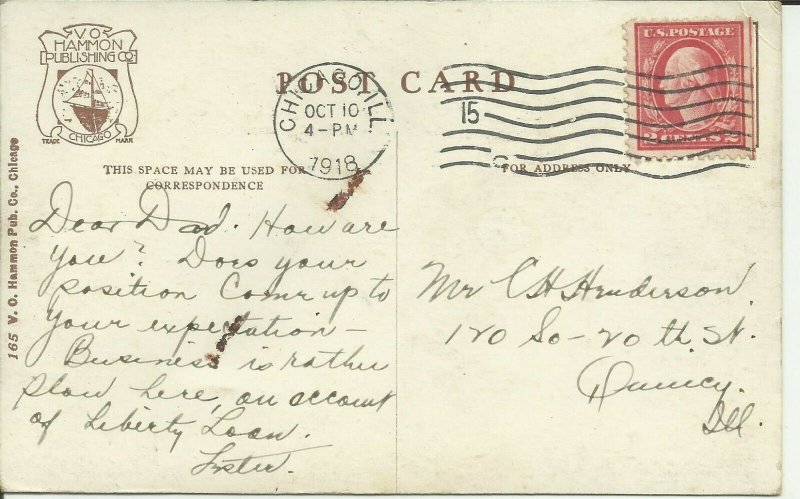 V O
HAMMON
PUBLISHING CO
CHICAGO
TRADE MARK
POST CARD
CHICAGO, ILL
OCT 10
4-PM
1918
15
U.S. POSTAGE
2 CENTS 2
THIS SPACE MAY BE USED FOR
CORRESPONDENCE
FOR ADDRESS ONLY
165 V. O. Hammon Pub. Co., Chicago
Dear Dad. How are
you? Does your
position Come up to
your expectation –
Business is rather
slow here, on account
of Liberty Loan.
Mr C H Henderson
120 So - 20 th St.
Quincy.
Ill.